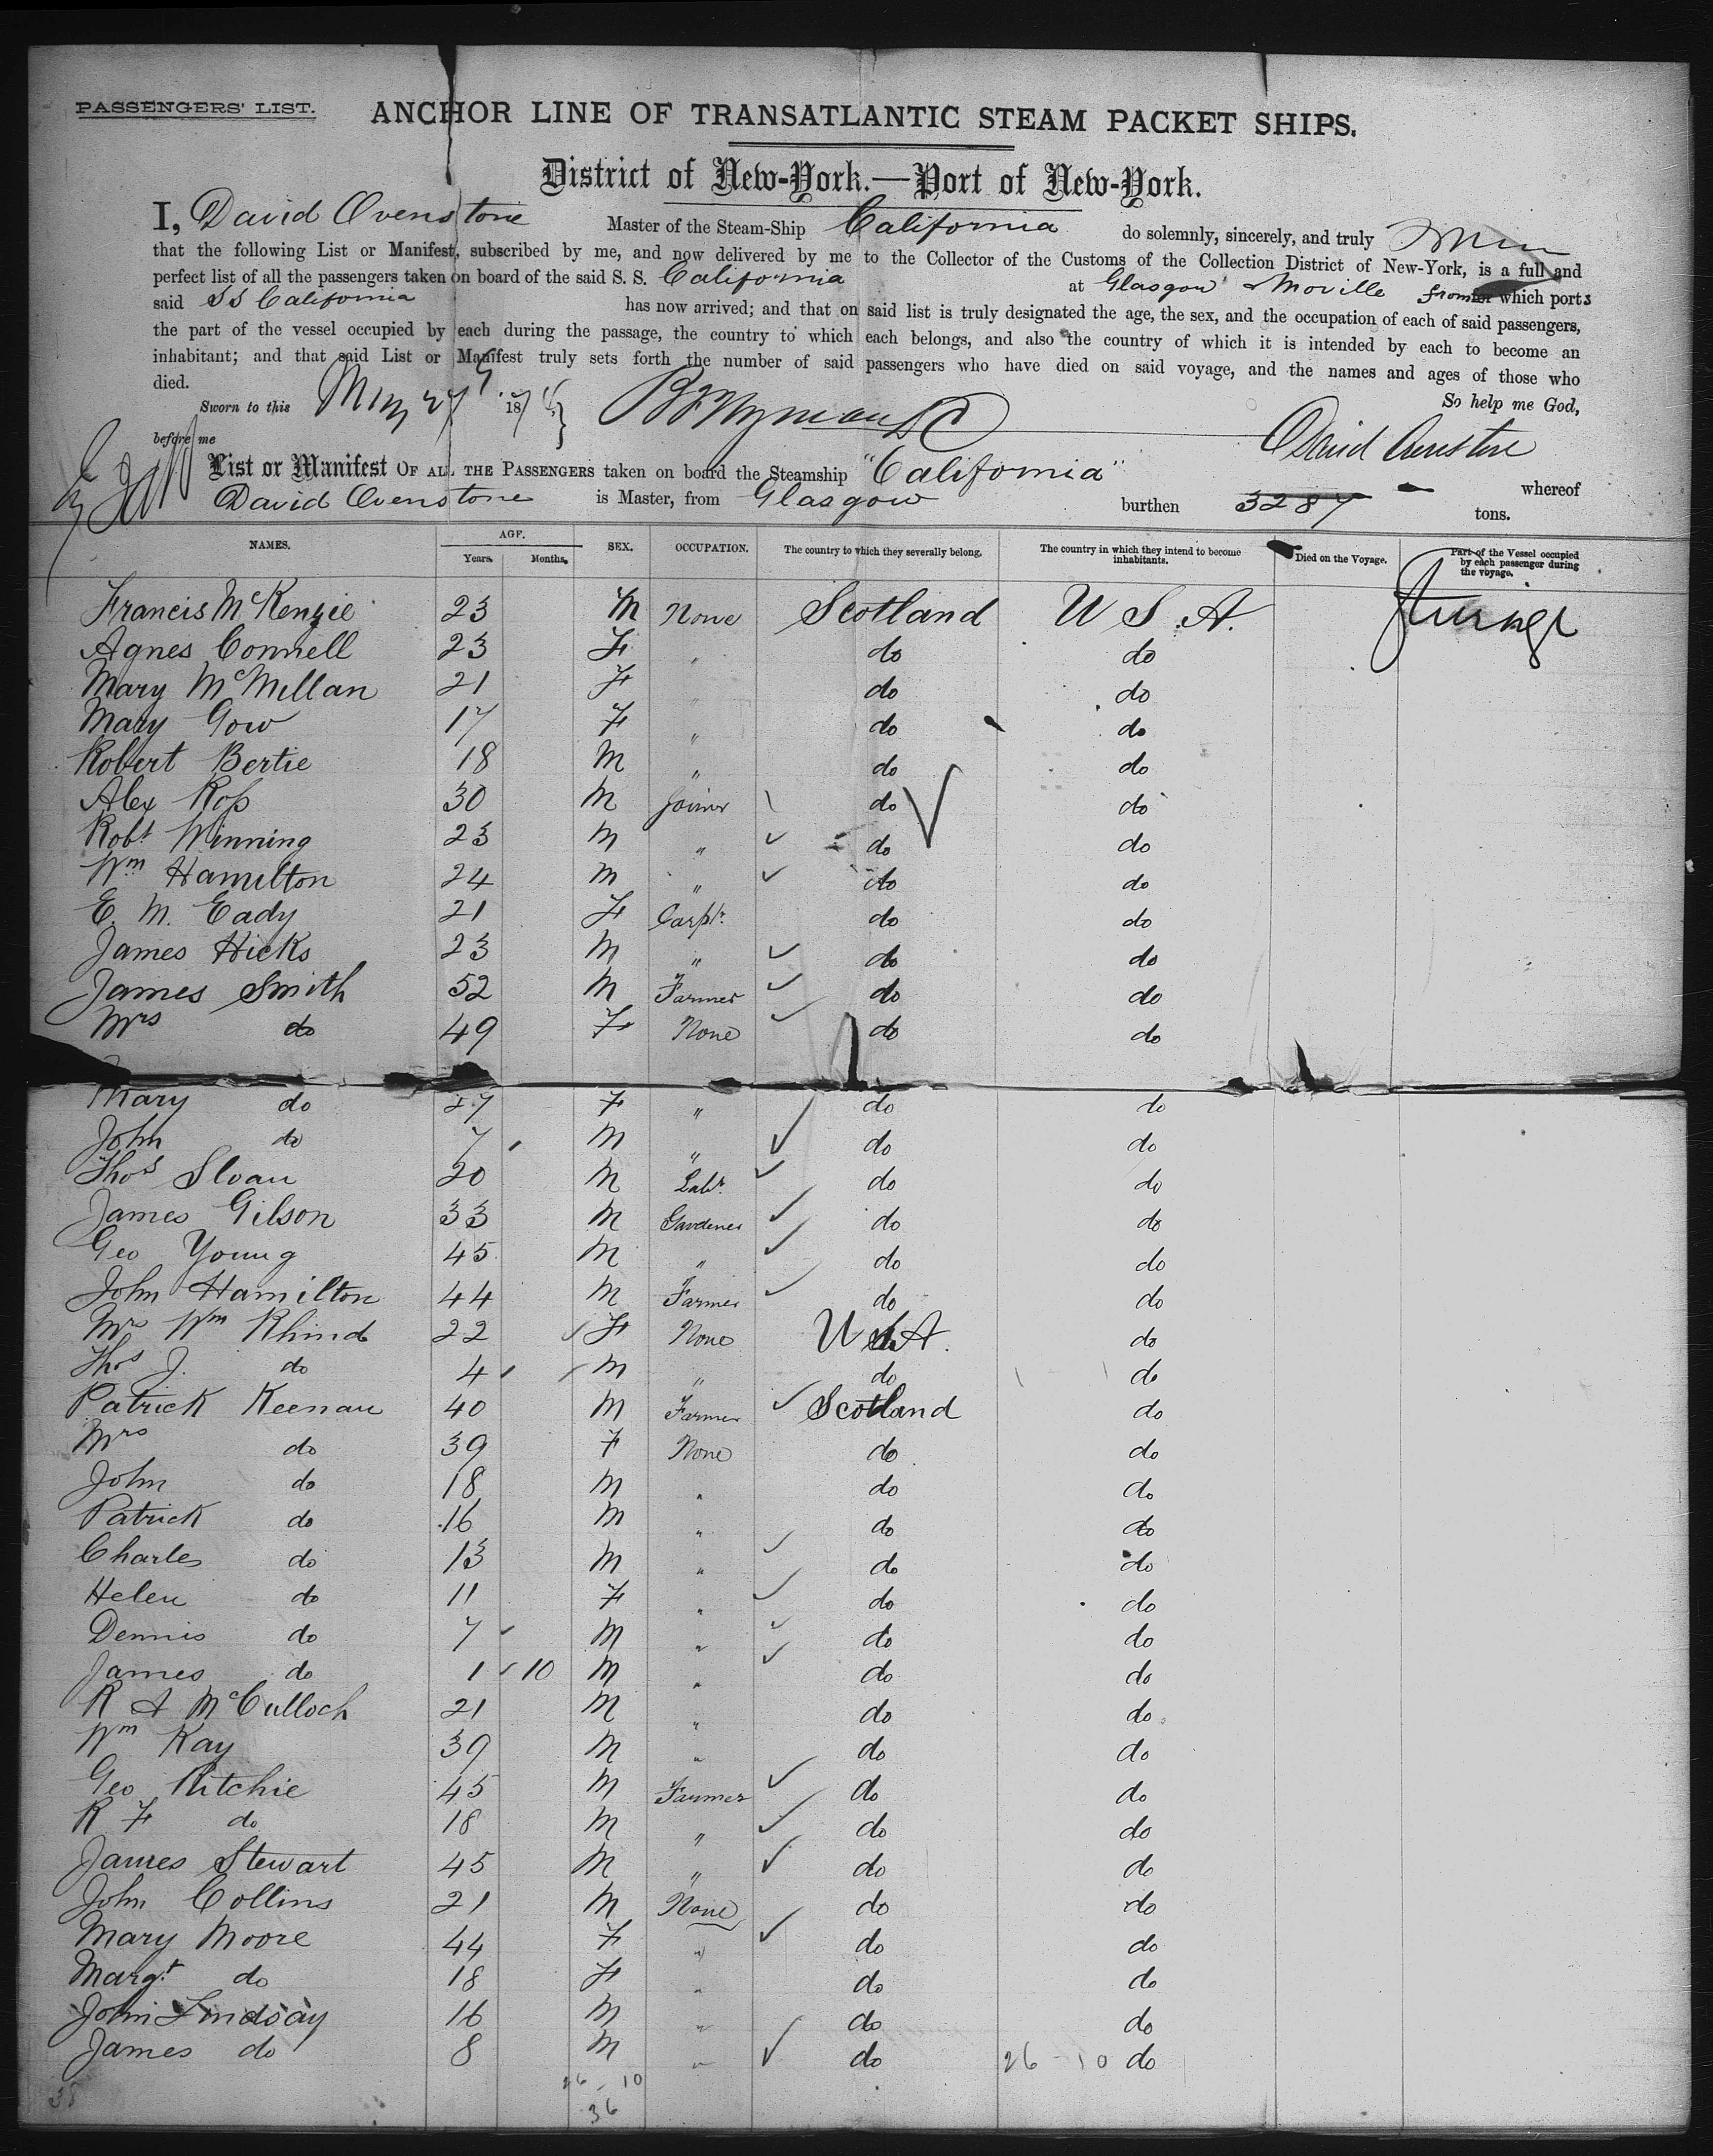 PASSENGERS' LIST. ANCHOR LINE OF TRANSATLANTIC STEAM PACKET SHIPS.
District of New-York.—Port of New-York.
I, David Ovenstone Master of the Steam-Ship California do solemnly, sincerely, and truly
that the following List or Manifest, subscribed by me, and now delivered by me to the Collector of the Customs of the Collection District of New-York, is a full and
perfect list of all the passengers taken on board of the said S. S. California at Glasgow & Moville from which ports
said SS California has now arrived; and that on said list is truly designated the age, the sex, and the occupation of each of said passengers,
the part of the vessel occupied by each during the passage, the country to which each belongs, and also the country of which it is intended by each to become an
inhabitant; and that said List or Manifest truly sets forth the number of said passengers who have died on said voyage, and the names and ages of those who
died. So help me God,
Sworn to this May 27 187
before me David Ovenstone
List or Manifest OF ALL THE PASSENGERS taken on board the Steamship "California" whereof
David Ovenstone is Master, from Glasgow burthen 3287 tons.
NAMES. AGE. Years. Months. SEX. OCCUPATION. The country to which they severally belong. The country in which they intend to become inhabitants. Died on the Voyage. Part of the Vessel occupied by each passenger during the voyage.
Francis McKenzie 23 M None Scotland U S. A. Steerage
Agnes Connell 23 F " do do
Mary McMillan 21 F " do do
Mary Gow 17 F " do do
Robert Bertie 18 M " do do
Alex Ross 30 M Joiner do do
Robt Winning 23 M " do do
Wm Hamilton 24 M " do do
E. M. Eady 21 F Carptr. do do
James Hicks 23 M " do do
James Smith 52 M Farmer do do
Mrs do 49 F None do do
Mary do 27 F " do do
John do 7 M " do do
Thos Sloan 20 M Labr. do do
James Gilson 33 M Gardener do do
Geo Young 45 M " do do
John Hamilton 44 M Farmer do do
Mrs Wm Rhind 22 F None U S A. do
Thos J. do 4 M " do do
Patrick Keenan 40 M Farmer Scotland do
Mrs do 39 F None do do
John do 18 M " do do
Patrick do 16 M " do do
Charles do 13 M " do do
Helen do 11 F " do do
Dennis do 7 M " do do
James do 1 10 M " do do
R A McCulloch 21 M " do do
Wm Kay 39 M " do do
Geo Ritchie 45 M Farmer do do
R F do 18 M " do do
James Stewart 45 M " do do
John Collins 21 M None do do
Mary Moore 44 F " do do
Margt do 18 F " do do
John Lindsay 16 M " do do
James do 8 M " do 26-10 do
26-10
36